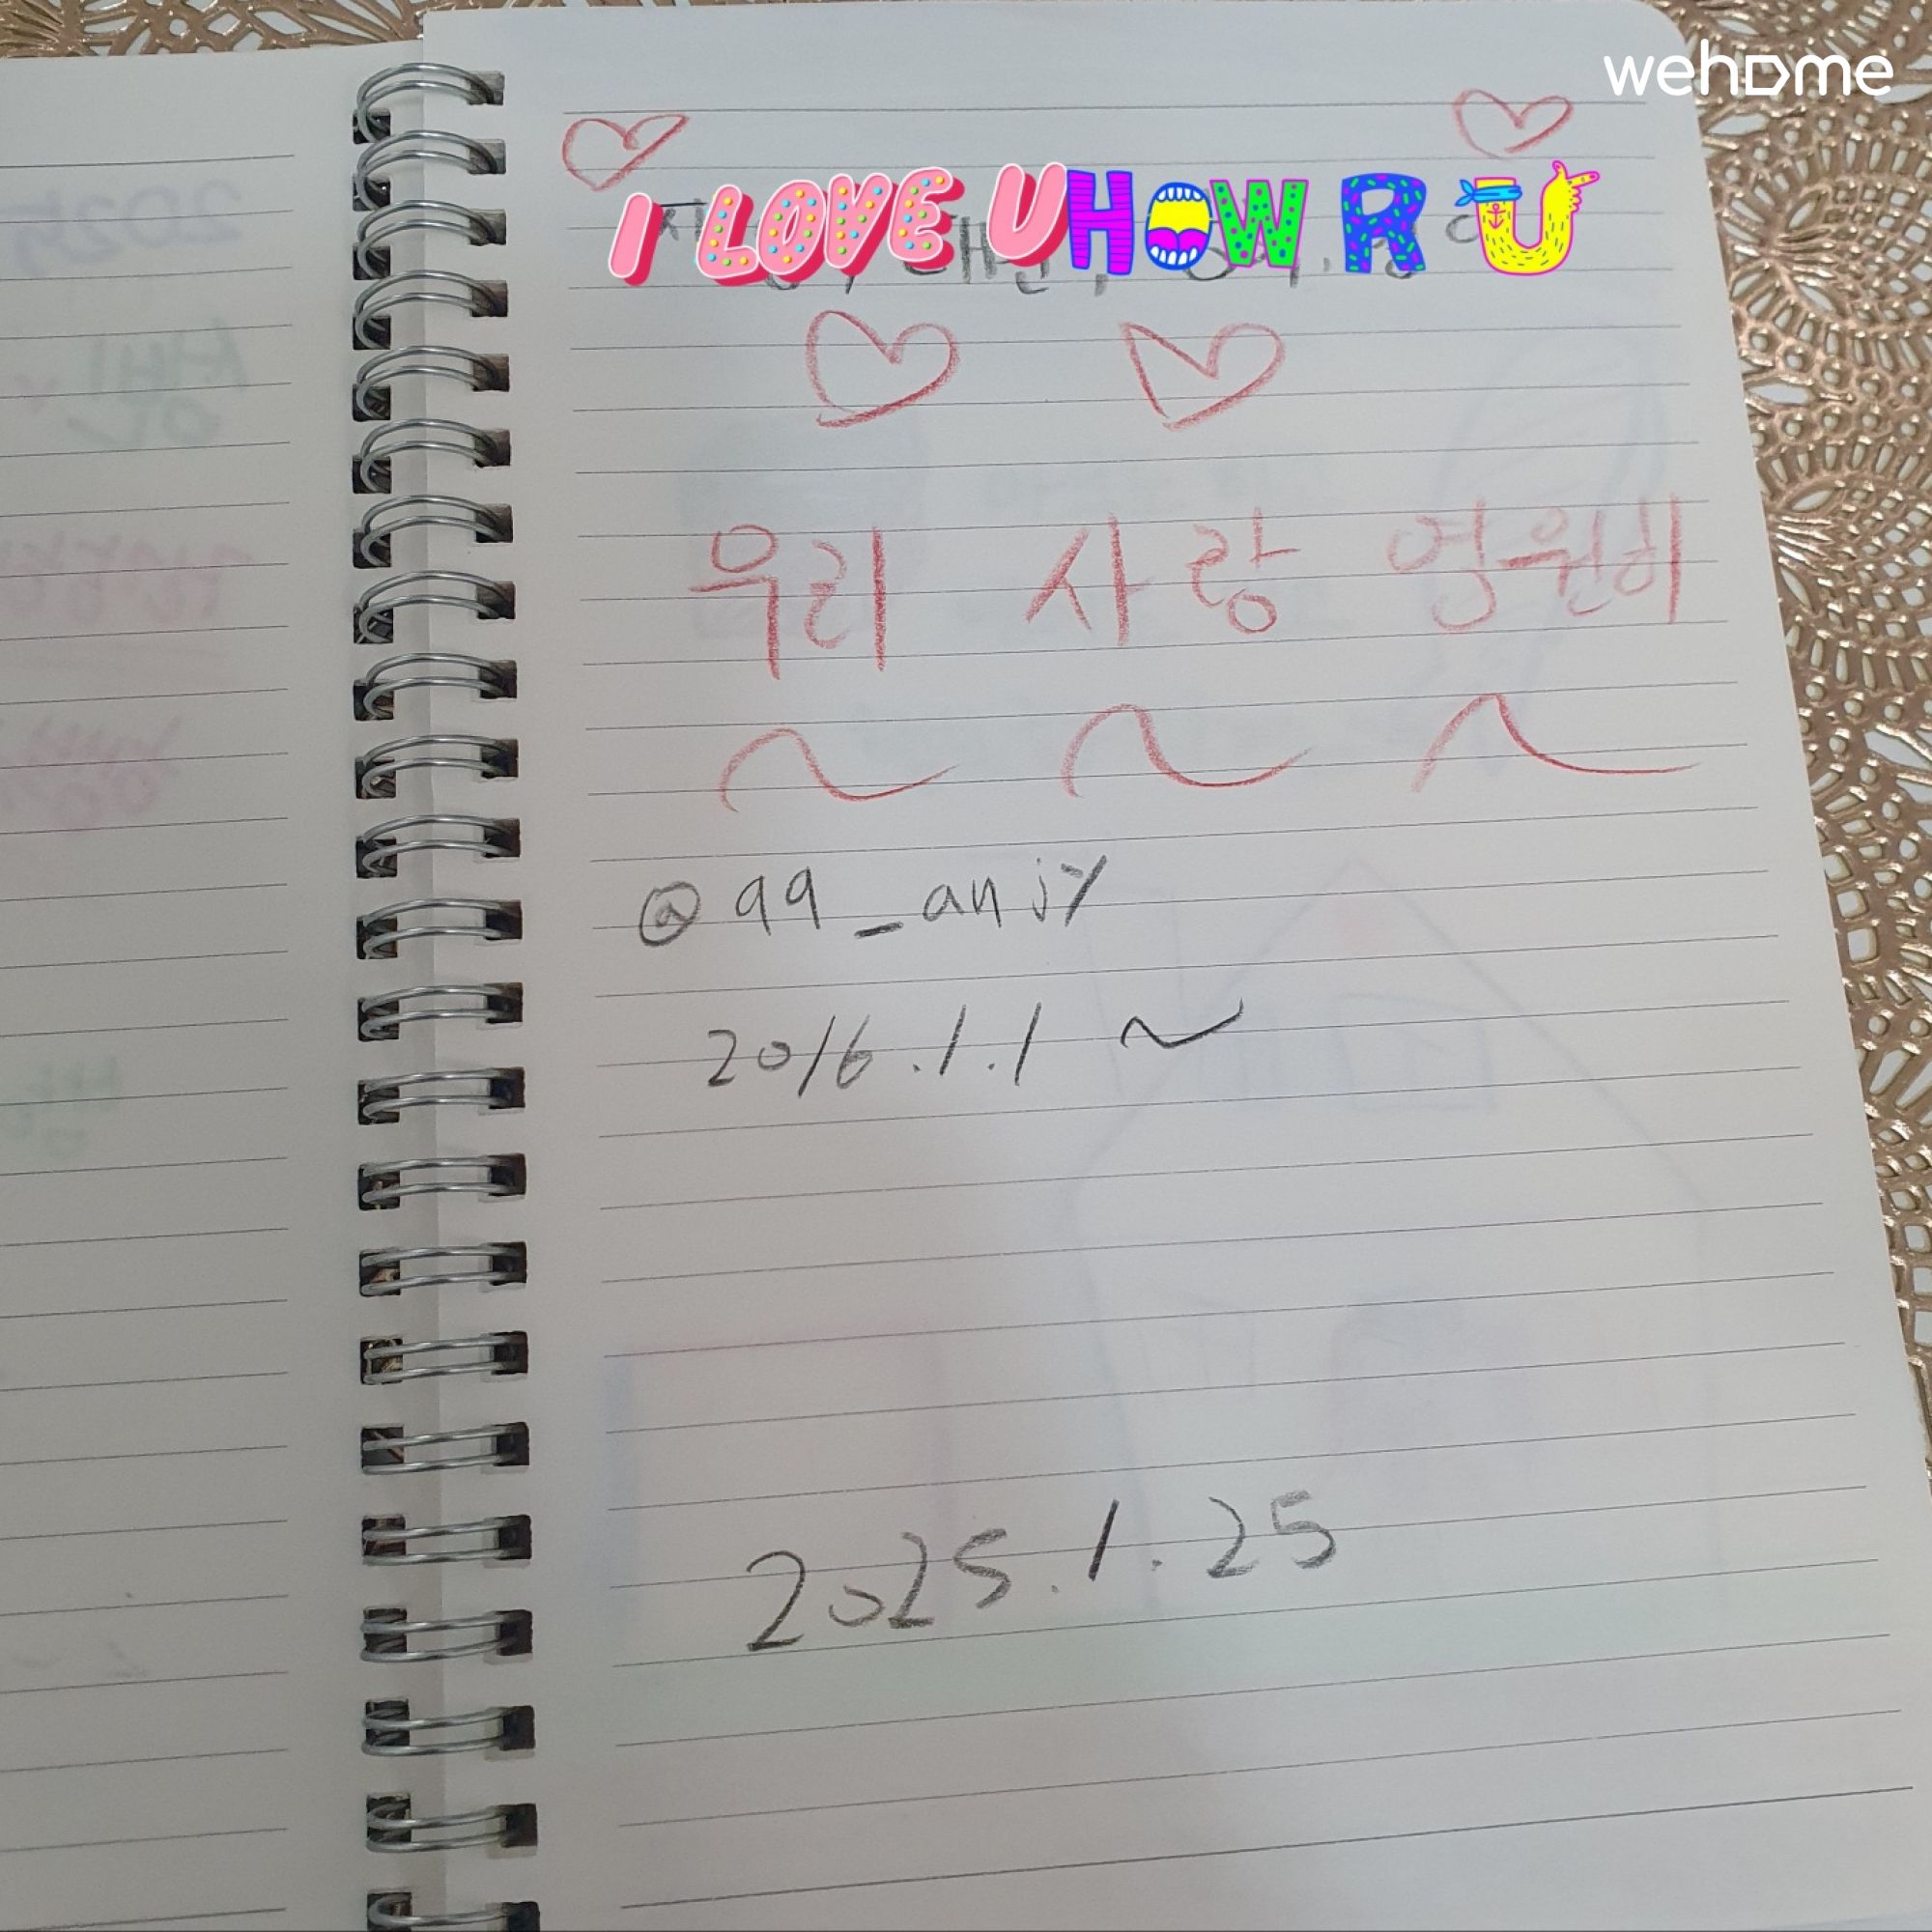 wehome
I LOVE U HOW R U
우리 사랑 영원히
~ ~ ~
@99_anjy
2016.1.1 ~
2025.1.25